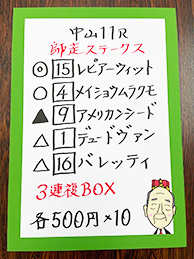 中山11R
師走ステークス
◎15レピアーウィット
○4メイショウムラクモ
▲9アメリカンシード
△1デュードヴァン
△16バレッティ
3連複BOX
各500円×10